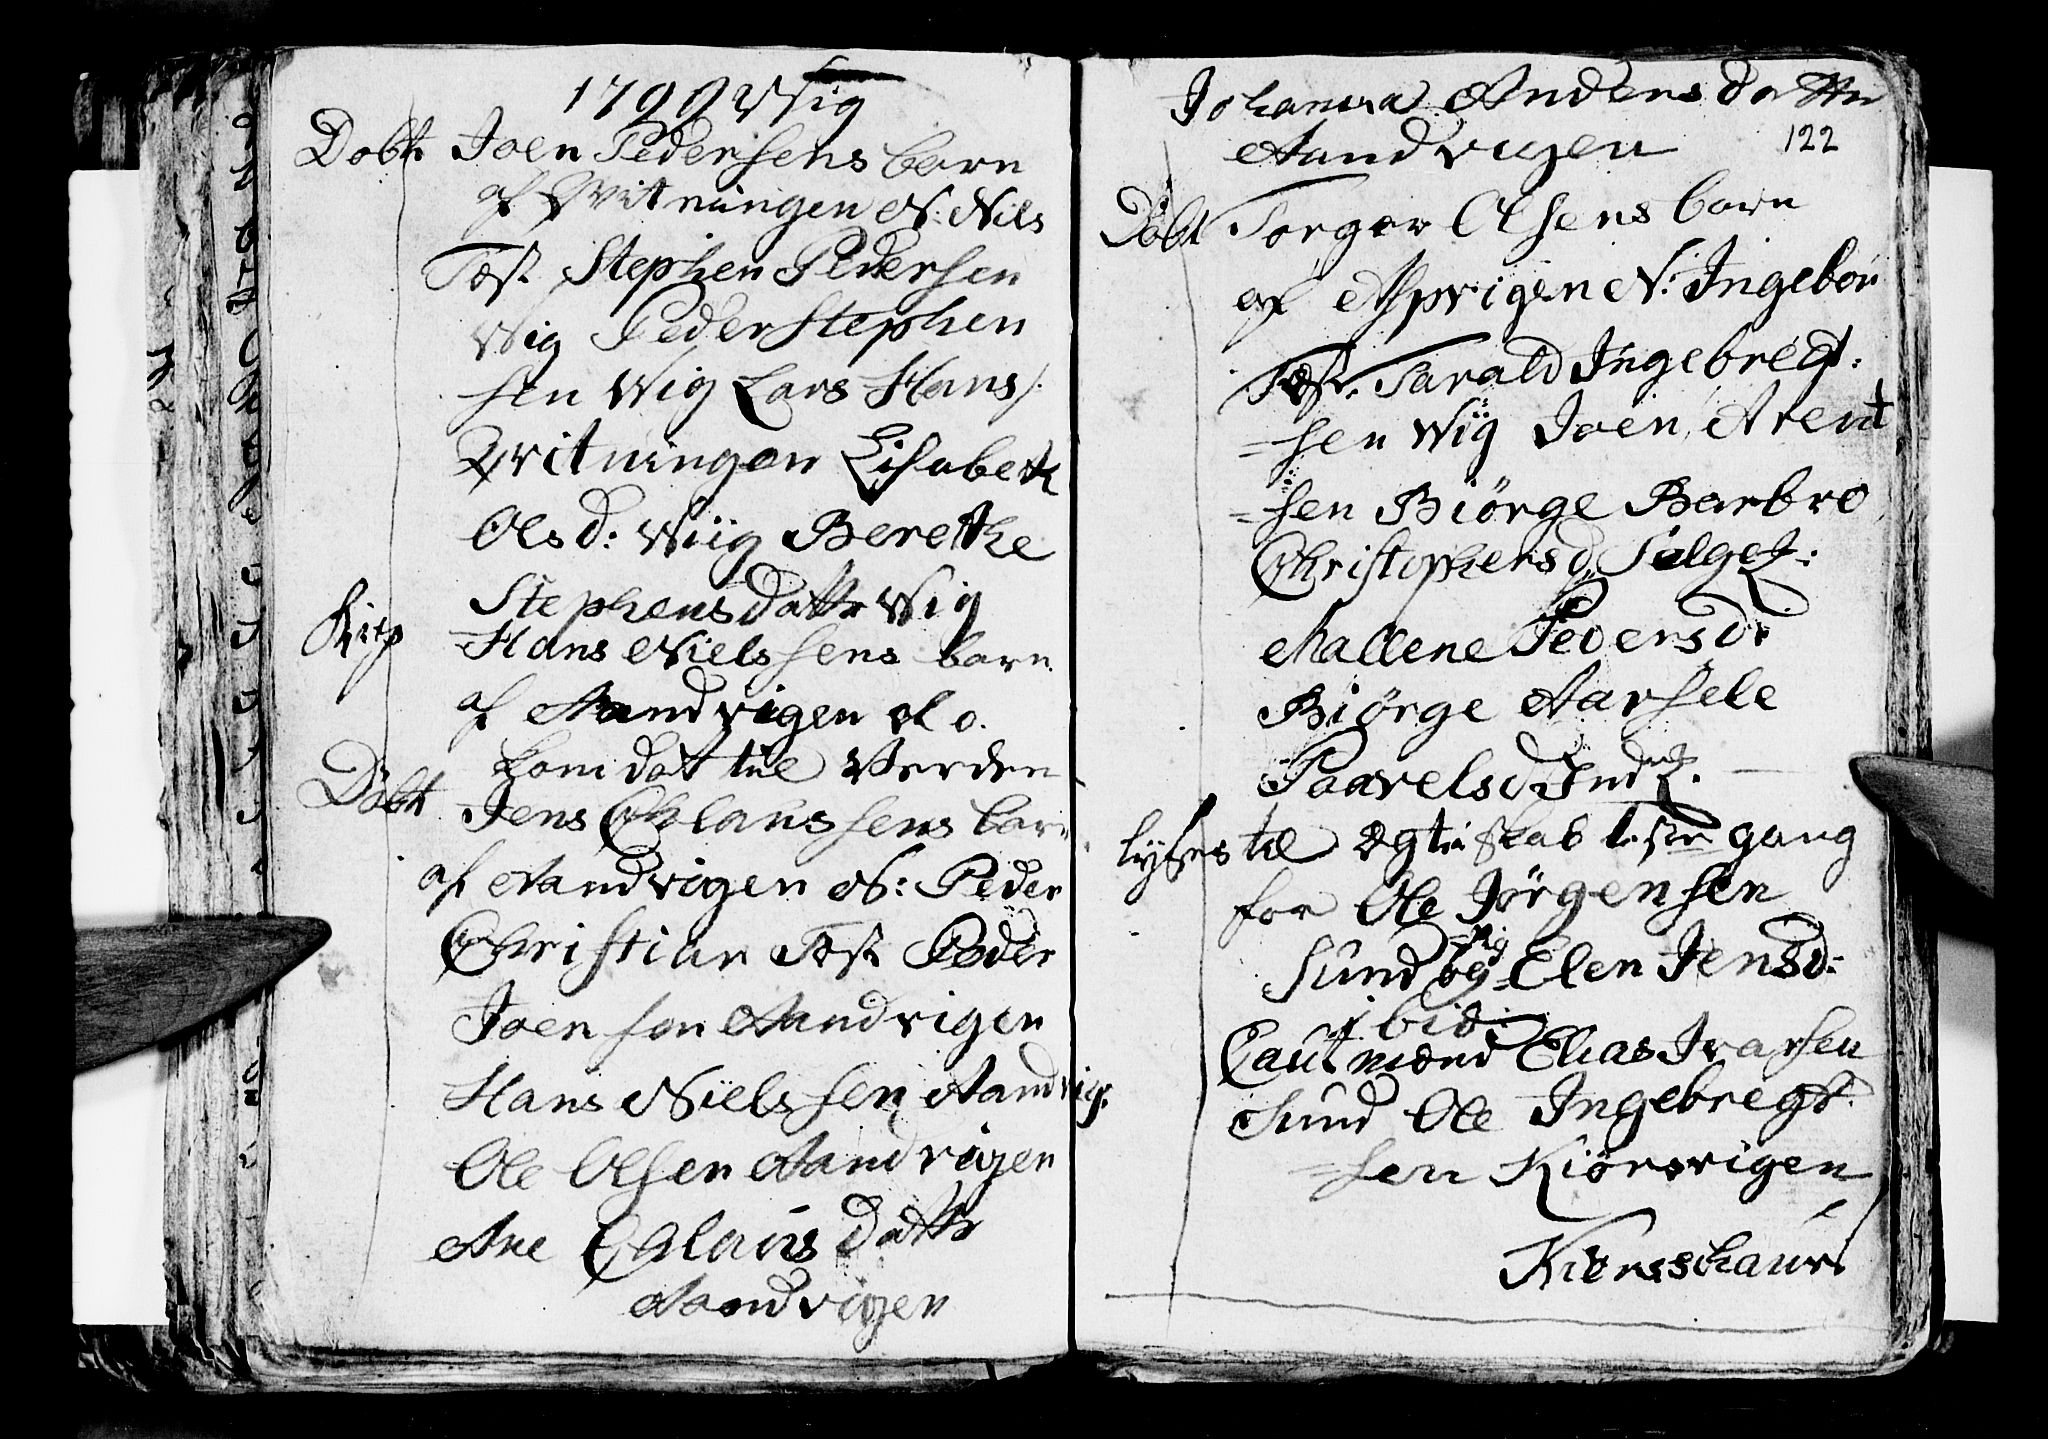 1799 Wig
Dobt Joen Pedersens barn
af Qvitningen N: Nils
Test Stephen Pedersen
Wig Peder Stephen
sen Wig Lars Hans/:
Qvitningen Lisabeth
Olsd: Wiig Berethe
Stephensdattr Wig
Hans Nielssens barn
af Aandvigen
kom døt til Verden
Döbt Jens Chlaussens barn
af Aandvigen N: Peder
Christian Test Peder
Joensen Aandvigen
Hans Nielssen Aandvig:
Ole Olsen Aandvigen
Ane Chlausdattr
Aandvigen
Johanna Andersdatter
Aandvigen 122
Döbt Torger Olsens barn
af Aspvigen N: Ingebor
Test. Tarald Ingebregt:
=sen Wiig Joen Arent
=sen Biörge Barbro
Christophersd Selget:
Mallene Pedersdr
Biörge Aarsele
Paavelsd
lyses til Ægteskab 1ste gang
for Ole Jörgensen
Sund og Pig Elen Jensd:
ibid:
Cautmænd Elias Ivarsen
Sund Ole Ingebregt
=sen Kiörsvigen
Kiørsschaur